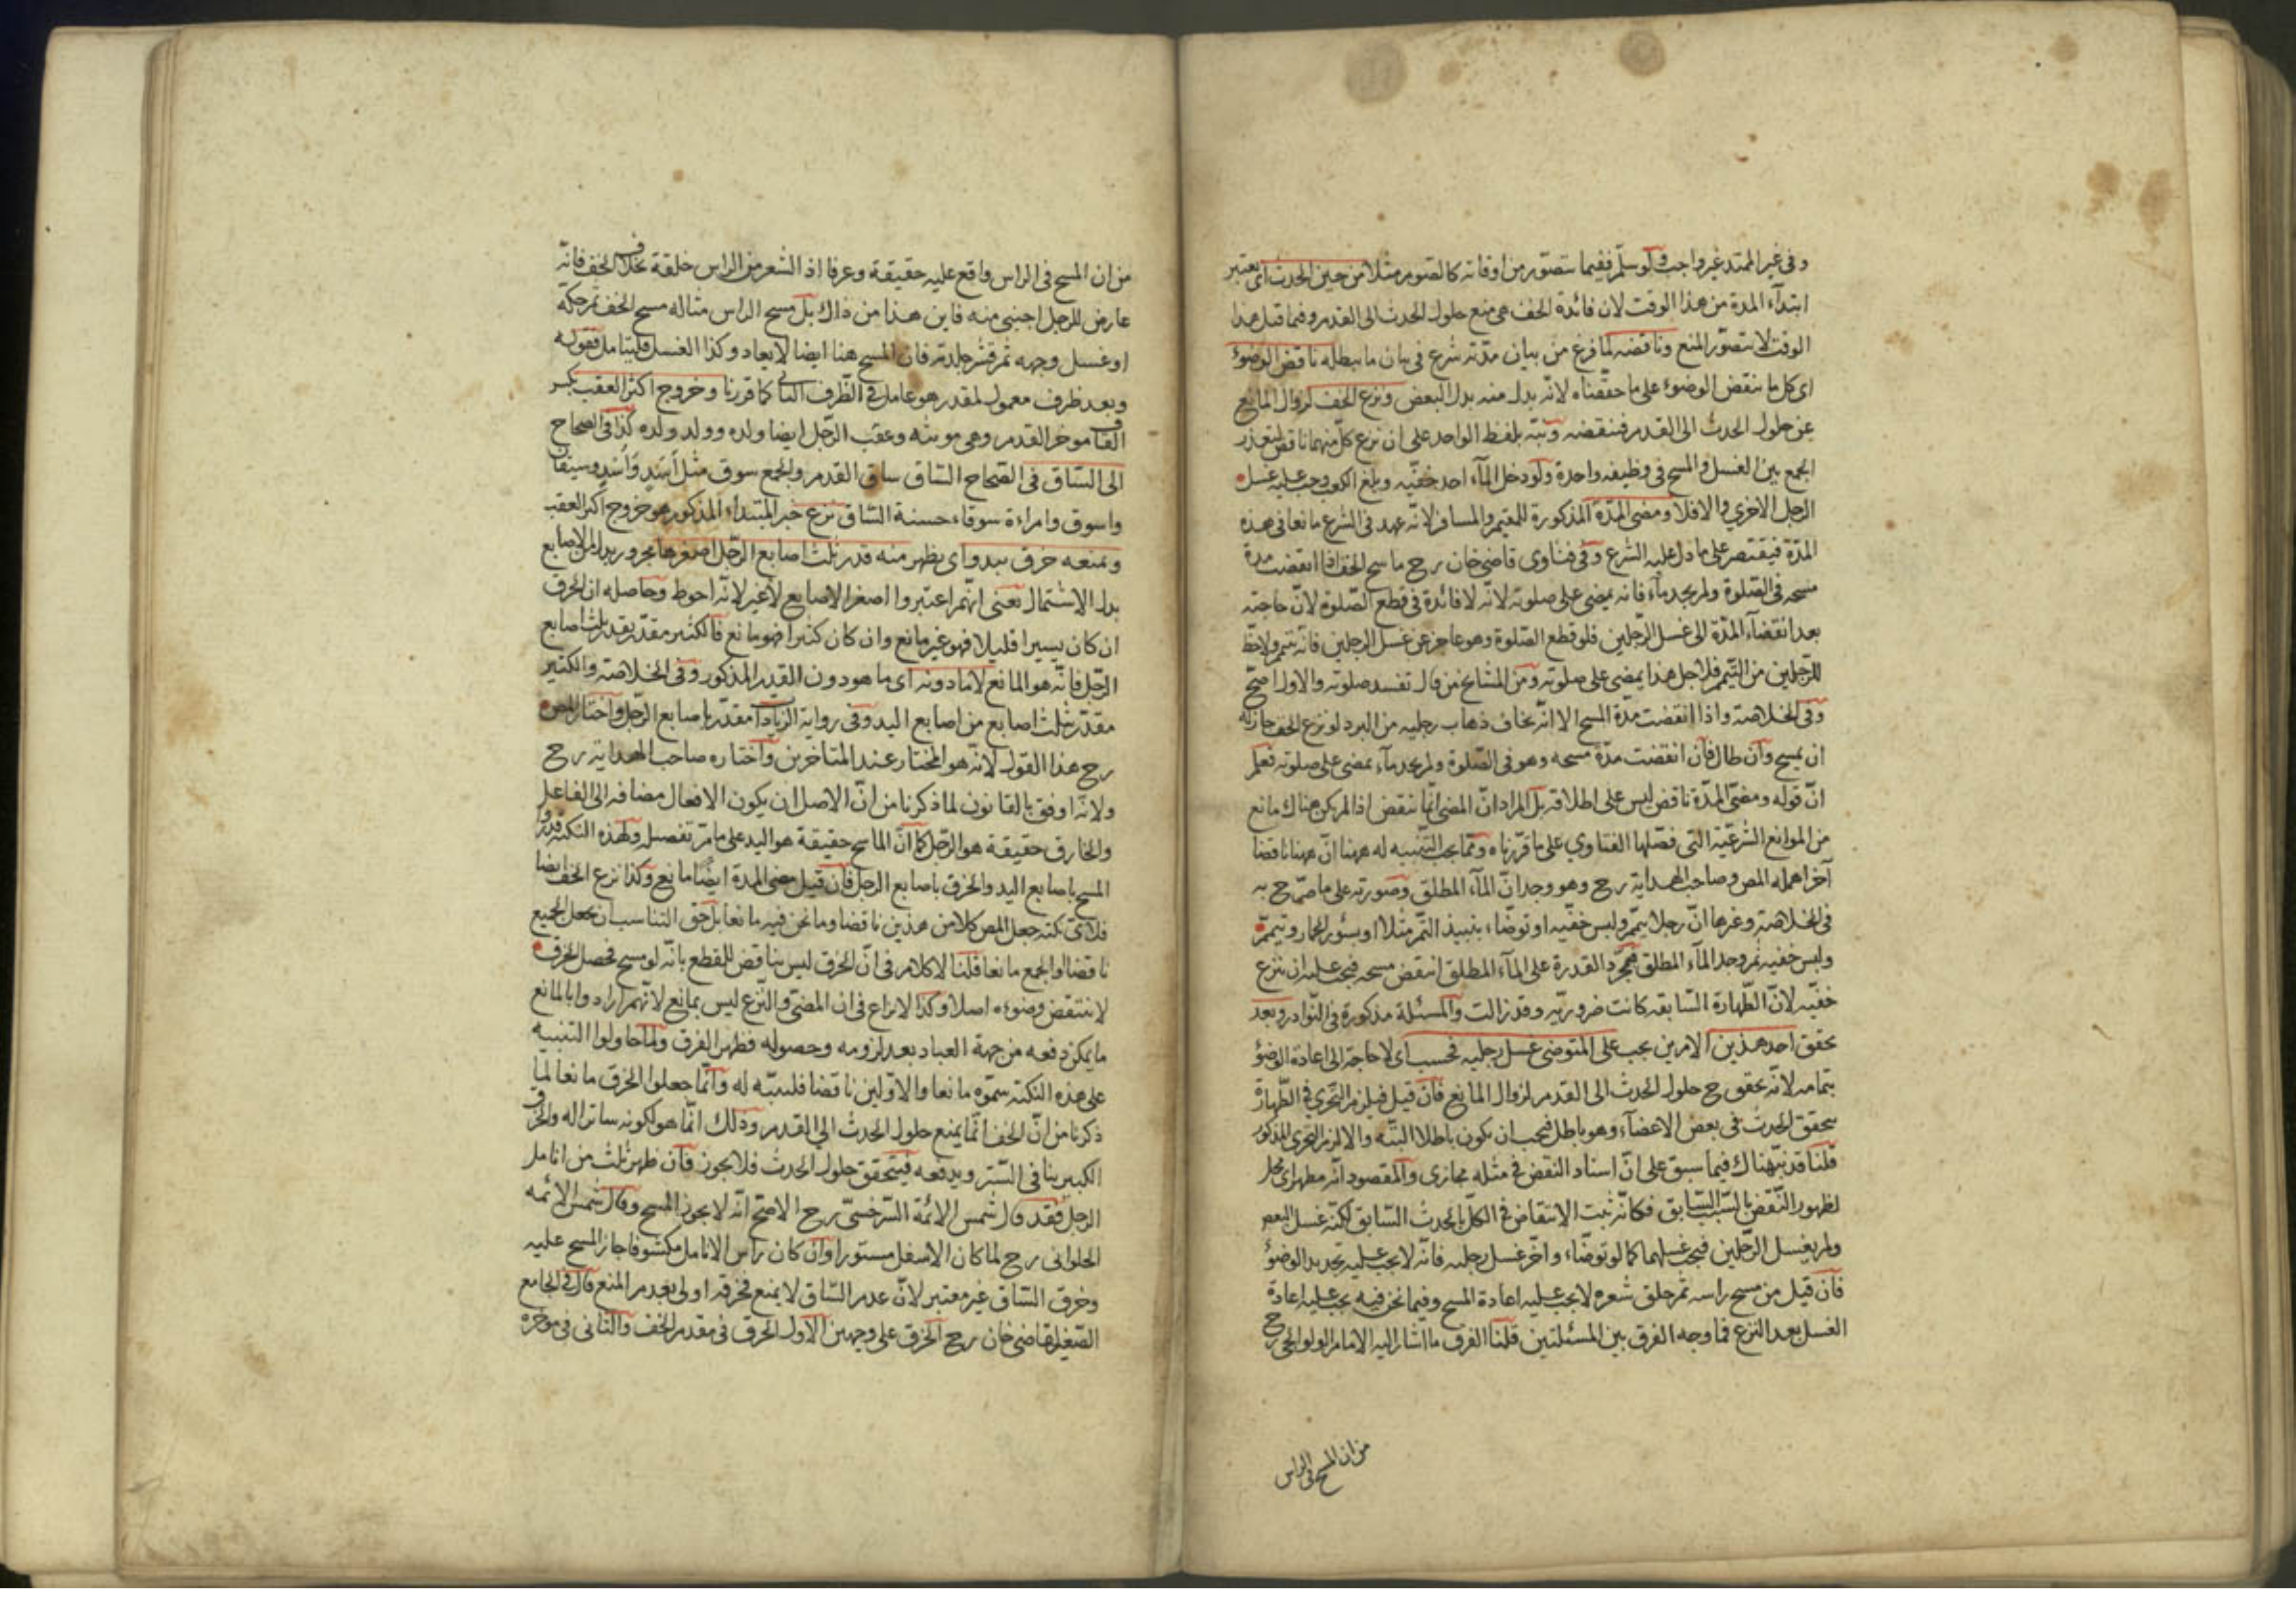 وفى غير الممتد غير واجب ولو سلم ففيما يتصور من اوقاته كالصوم مثلا من حين الحدث اى يعتبر
ابتدآء المدة من هذا الوقت لان فائدة الخف هى منع حلول الحدث الى القدم وفيما قبل هذا
الوقت لا يتصور المنع وناقضه لما فرغ من بيان مدته شرع فى بيان ما يبطله ناقض الوضوء
اى كل ما ينقض الوضوء على ما حققناه لانه بدل منه بدل البعض ونزع الخف لزوال المانع
عن حلول الحدث الى القدم فينقضه ونبه بلفظ الواحد على ان نزع كل منهما ناقض لتعذر
الجمع بين الغسل والمسح فى وظيفه واحدة ولو دخل المآء احد خفيه وبلغ الكعب وجب عليه غسل
الرجل الاخرى والا فلا ومضى المدة المذكورة للمقيم والمسافر لانه عهد فى الشرع مانعا فى هذه
المدة فيقتصر على ما دل عليه الشرع وفى فتاوى قاضى خان رح ماسح الخف اذا انقضت مدة
مسحه فى الصلوة ولم يجد مآء فانه يمضى على صلوته لانه لا فائدة فى قطع الصلوة لان حاجته
بعد انقضآء المدة الى غسل الرجلين فلو قطع الصلوة وهو عاجز عن غسل الرجلين فانه يتيمم ولا حظ
للرجلين من التيمم فلاجل هذا يمضى على صلوته ومن المشايخ من قال تفسد صلوته والاول اصح
وفى الخلاصة واذا انقضت مدة المسح الا انه يخاف ذهاب رجليه من البرد لو نزع الخف جاز له
ان يمسح وان طال فان انقضت مدة مسحه وهو فى الصلوة ولم يجد مآء يمضى على صلوته فعلم
ان قوله ومضى المدة ناقض ليس على اطلاقه بل المراد ان المضى انما ينقض اذا لم يكن هناك مانع
من الموانع الشرعية التى فصلها الفتاوى على ما قررناه ومما يجب التنبيه له ههنا ان ههنا ناقضا
آخر اهمله المص وصاحب الهداية رح وهو وجدان المآء المطلق وصورته على ما صرح به
فى الخلاصة وغيرها ان رجلا تيمم ولبس خفيه او توضاء بنبيذ التمر مثلا او بسؤر الحمار وتيمم
ولبس خفيه ثم وجد المآء المطلق فبمجرد القدرة على المآء المطلق انتقض مسحه فيجب عليه ان ينزع
خفيه لان الطهارة السابقه كانت ضروريه وقد زالت والمسئلة مذكورة فى النوادر وبعد
تحقق احد هذين الامرين يجب على المتوضى غسل رجليه فحسب اى لا حاجة الى اعادة الوضوء
بتمامه لانه تحقق ح حلول الحدث الى القدم لزوال المانع فان قيل فيلزم التجزى فى الطهارة
بتحقق الحدث فى بعض الاعضآء وهو باطل فيجب ان يكون باطلا البتة والا لزم التجزى المذكور
قلنا قد نبهناك فيما سبق على ان اسناد النقض فى مثله مجازى والمقصود انه مظهر اى محل
لظهور النقض بالسبب السابق فكانه ثبت الانتقاض فى الكل بالحدث السابق لكنه غسل البعض
ولم يغسل الرجلين فيجب غسلهما كما لو توضاء واخر غسل رجليه فانه لا يجب عليه تجديد الوضوء
فان قيل من مسح راسه ثم حلق شعره لا يجب عليه اعادة المسح وفيما نحن فيه يجب عليه اعادة
الغسل بعد النزع فما وجه الفرق بين المسئلتين قلنا الفرق ما اشار اليه الامام الولوالجى رح
من ان المسح فى الراس
من ان المسح فى الراس واقع عليه حقيقة وعرفا اذ الشعر من الراس خلقة بخلاف الخف فانه
عارض للرجل اجنبى منه فاين هذا من ذاك بل مسح الراس مثاله مسح الخف ثم حكه
او غسل وجهه ثم قشر جلدته فان المسح هنا ايضا لا يعاد وكذا الغسل فليتامل فقوله
وبعد ظرف معمول لمقدر هو عامل فى الظرف الثانى كما قررنا وخروج اكثر العقب بكسر
القاف موخر القدم وهى مونثه وعقب الرجل ايضا ولده وولد ولده كذا فى الصحاح
الى الساق فى الصحاح الساق ساق القدم والجمع سوق مثل اسد واسد وسيقان
واسوق وامراءة سوقاء حسنة الساق نزع خبر المبتداء المذكور هو خروج اكثر العقب
ويمنعه خرق يبدو اى يظهر منه قدر ثلث اصابع الرجل اصغرها مجرور بدل من الاصابع
بدل الاشتمال يعنى انهم اعتبروا اصغر الاصابع لا غير لانه احوط وحاصله ان الخرق
ان كان يسيرا قليلا فهو غير مانع وان كان كثيرا فهو مانع فالكثير مقدر بقدر ثلث اصابع
الرجل فانه هو المانع لا ما دونه اى ما هو دون القدر المذكور وفى الخلاصة والكثير
مقدر بثلث اصابع من اصابع اليد وفى رواية الزيادات مقدر باصابع الرجل واختار المص
رح هذا القول لانه هو المختار عند المتاخرين واختاره صاحب الهداية رح
ولانه اوفق بالقانون لما ذكرنا من ان الاصل ان يكون الافعال مضافه الى الفاعل
والخارق حقيقة هو الرجل كما ان الماسح حقيقة هو اليد على ما مر تفصيله ولهذه النكتة قدروا
المسح باصابع اليد والخرق باصابع الرجل فان قيل مضى المدة ايضا مانع وكذا نزع الخف ايضا
فلاى نكتة جعل المص كلا من هذين ناقضا وما نحن فيه مانعا بل حق التناسب ان يجعل الجميع
ناقضا او الجمع مانعا قلنا لا كلام فى ان الخرق ليس بناقض للقطع بانه لو مسح فحصل الخرق
لا ينتقض وضوءه اصلا وكذا لا نزاع فى ان المضى والنزع ليس بمانع لانهم ارادوا بالمانع
ما يمكن دفعه من جهة العباد بعد لزومه وحصوله فظهر الفرق ولما حاولوا التنبيه
على هذه النكتة سموه مانعا والاولين ناقضا فليتنبه له وانما جعلوا الخرق مانعا لما
ذكرنا من ان الخف انما يمنع حلول الحدث الى القدم وذلك انما هو لكونه ساترا له والخرق
الكبير ينافى الستر ويدفعه فيتحقق حلول الحدث فلا يجوز فان ظهر ثلث من انامل
الرجل فقد قال شمس الائمة السرخسى رح الاصح انه لا يجوز المسح وقال شمس الائمه
الحلوانى رح لما كان الاسفل مستورا وان كان راس الانامل مكشوفا جاز المسح عليه
وخرق الساق غير معتبر لان عدم الساق لا يمنع فخرقه اولى بعدم المنع قال فى الجامع
الصغير لقاضى خان رح الخرق على وجهين الاول الخرق فى مقدم الخف والثانى فى موخره